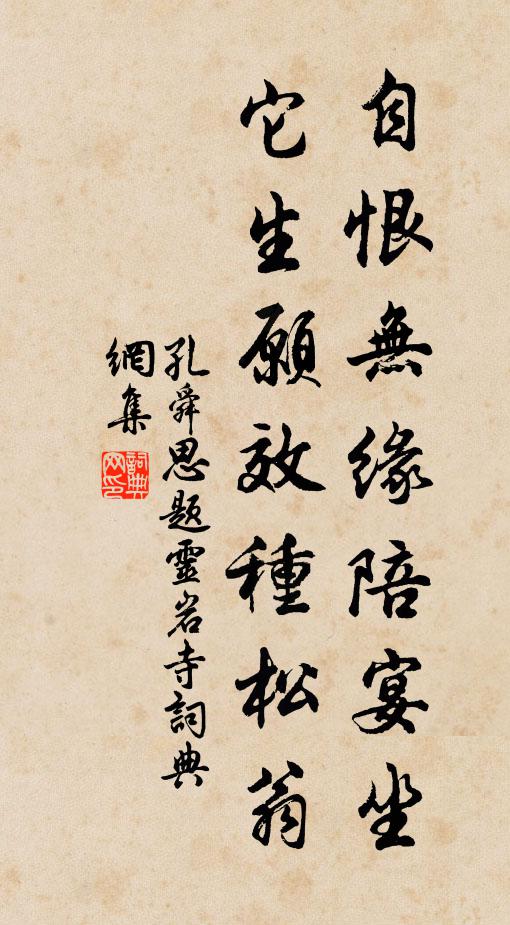 自恨無緣陪宴坐
它生願效種松翁
孔舜思題靈岩寺詞典
網集
詞典
网印